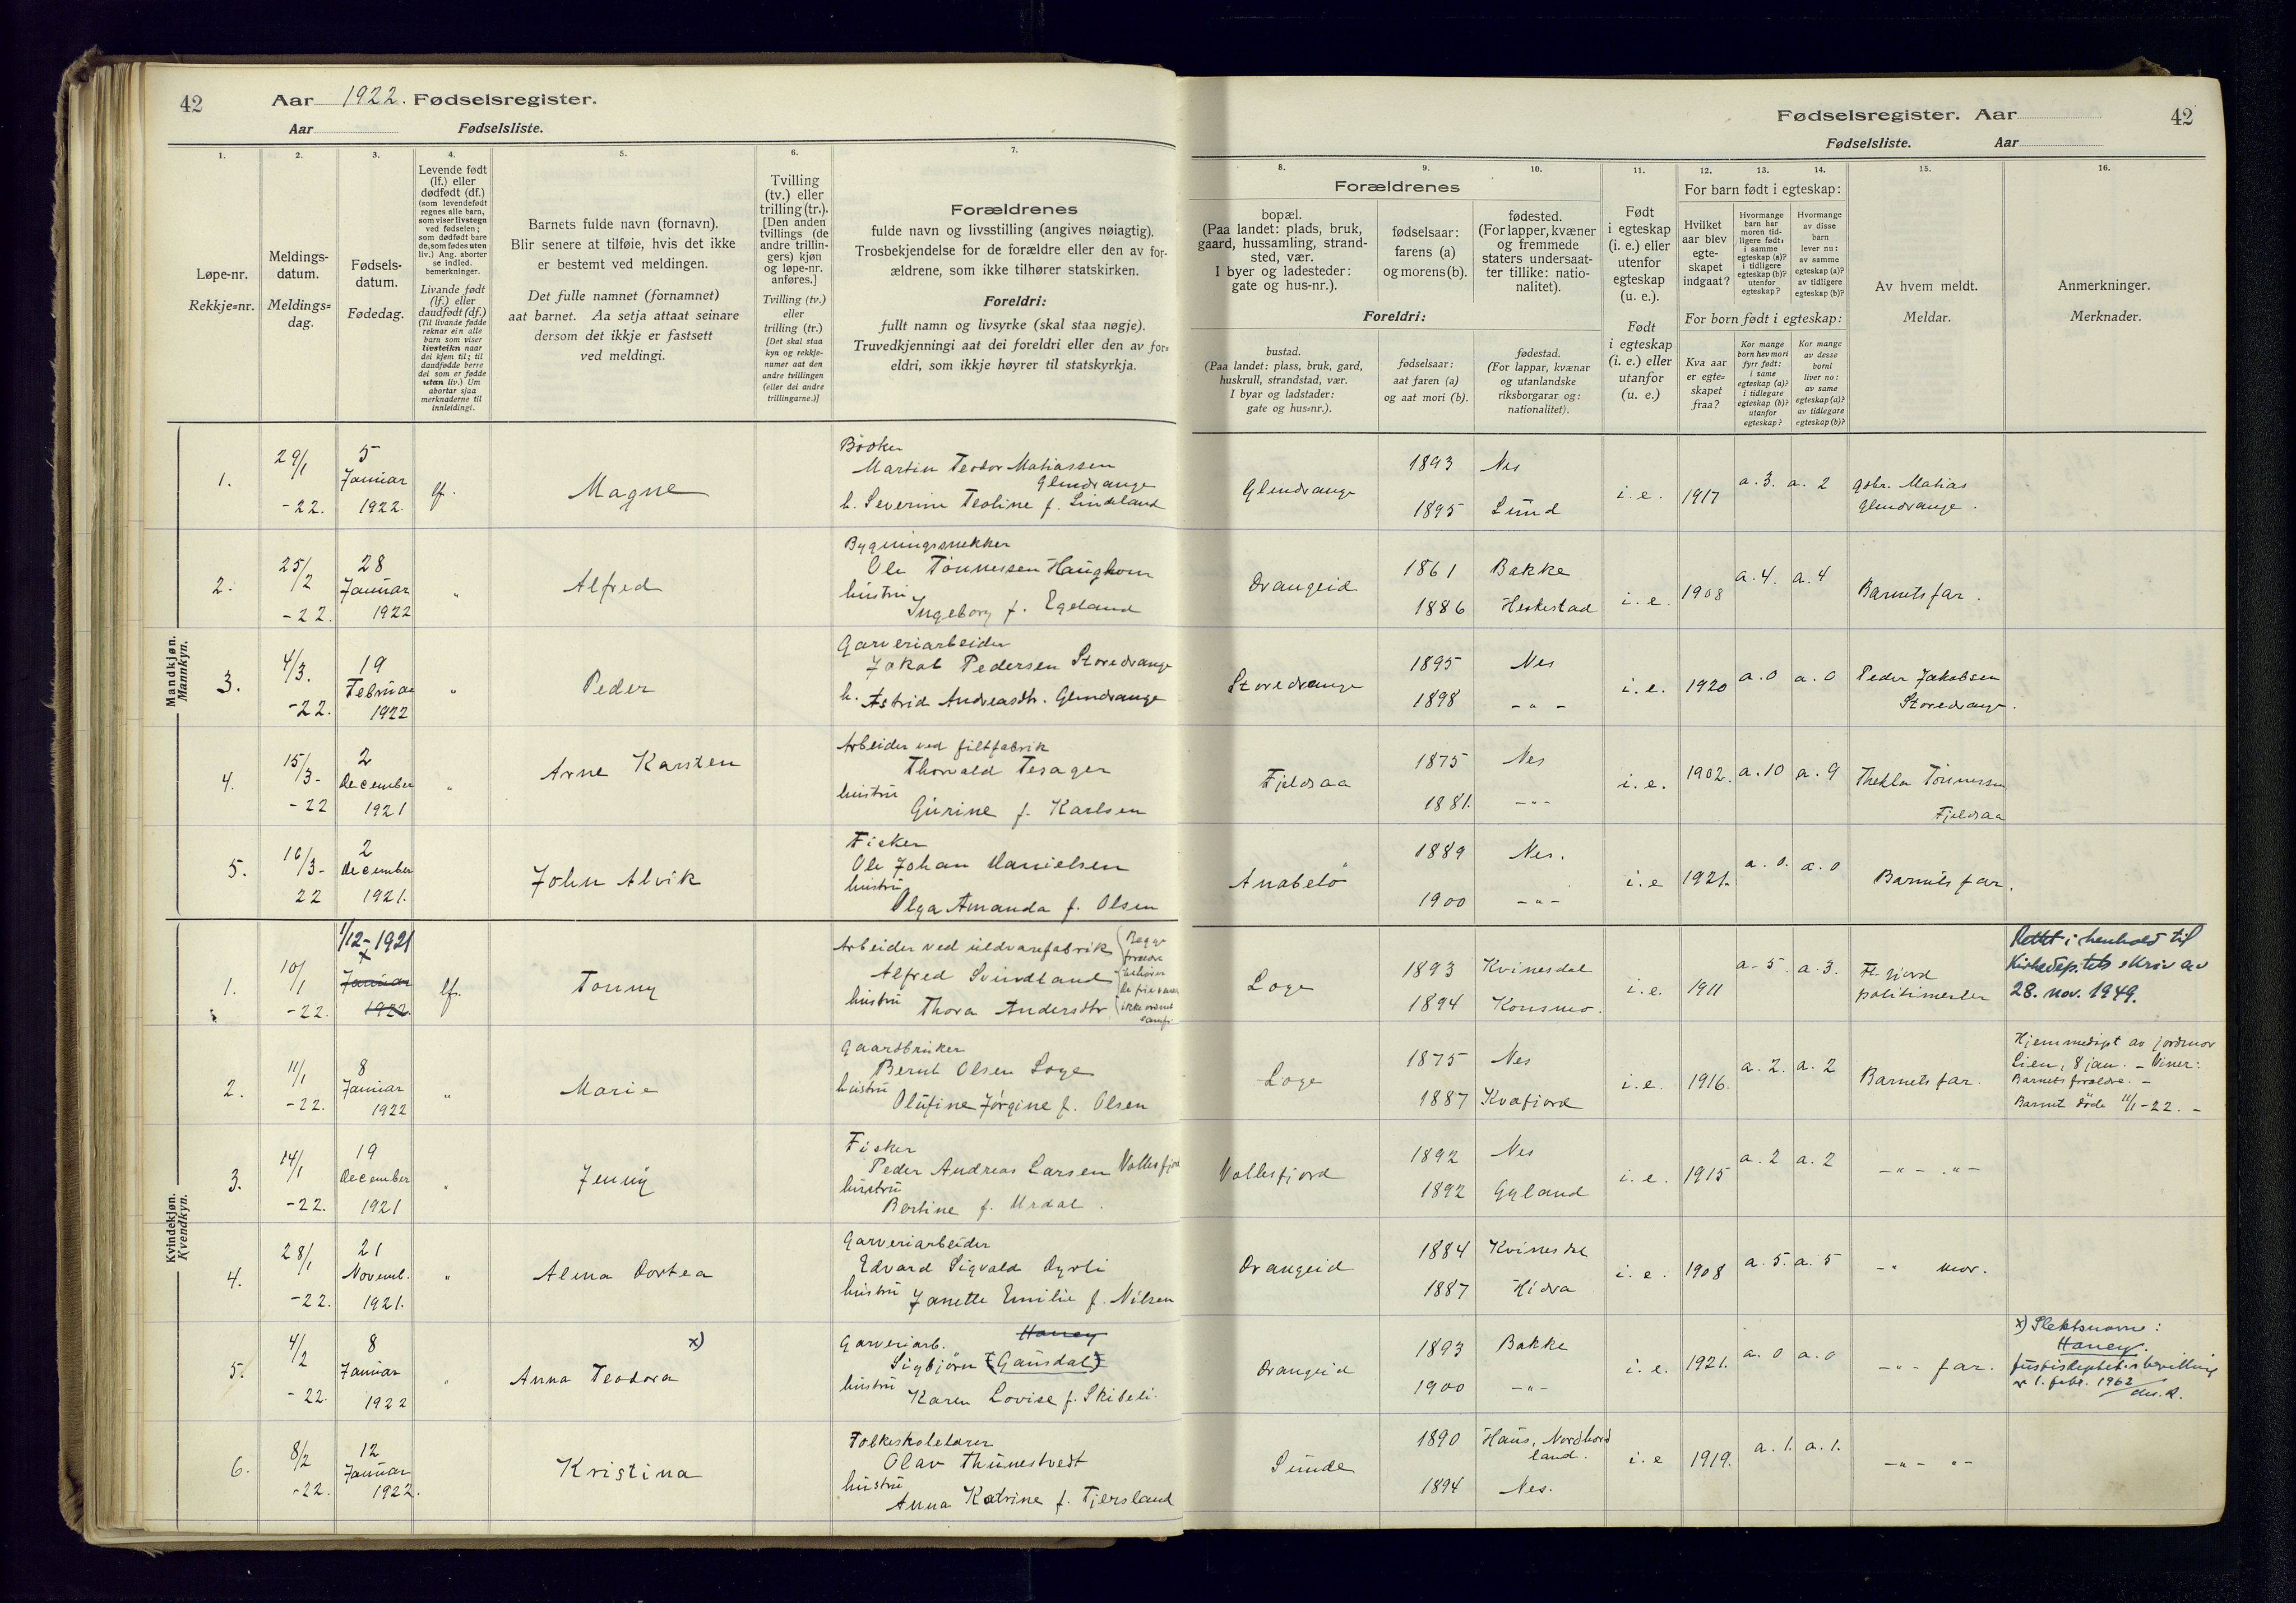 42
Aar 1922. Fødselsregister.
Aar Fødselsliste.
1.
Løpe-nr.
Rekkje=nr.
2.
Meldings-
datum.
Meldings=
dag.
3.
Fødsels-
datum.
Fødedag.
4.
Levende født
(lf.) eller
dødfødt (df.)
(som levendefødt
regnes alle barn,
som viser livstegn
ved fødselen;
som dødfødt bare
de, som fødes uten
liv.) Ang. aborter
se indled.
bemerkninger.
Livande født
(lf.) eller
daudfødt (df.)
(Til livande fødde
reknar ein alle
barn som viser
livsteikn naar
dei kjem til; til
daudfødde berre
dei som er fødde
utan liv.) Um
abortar sjaa
merknaderne til
innleidingi.
5.
Barnets fulde navn (fornavn).
Blir senere at tilføie, hvis det ikke
er bestemt ved meldingen.
Det fulle namnet (fornamnet)
aat barnet. Aa setja attaat seinare
dersom det ikkje er fastsett
ved meldingi.
6.
Tvilling
(tv.) eller
trilling (tr.).
[Den anden
tvillings (de
andre trillin-
gers) kjøn
og løpe-nr.
anføres.]
Tvilling (tv.)
eller
trilling (tr.)
[Det skal staa
kyn og rekkje-
numer aat den
andre tvillingen
(eller dei andre
trillingarne.)]
7.
Forældrenes
fulde navn og livsstilling (angives nøiagtig).
Trosbekjendelse for de forældre eller den av for-
ældrene, som ikke tilhører statskirken.
Foreldri:
fullt namn og livsyrke (skal staa nøgje).
Truvedkjenningi aat dei foreldri eller den av for=
eldri, som ikkje høyrer til statskyrkja.
Mandkjøn.
Mannkyn.
1.
29/1
-22.
5
Januar
1922.
lf.
Magne
Bøøker
Martin Teodor Matiassen
Glendrange
h. Severine Teoline f. Lindeland
2.
25/2
-22.
28
Januar
1922
"
Alfred
Bygningssnekker
Ole Tönnessen Haughom
hustru
Ingeborg f. Egeland
3.
4/3.
-22.
19
Februar
1922
"
Peder
Garveriarbeider
Jakob Pedersen Storedrange
h. Astrid Andreasdtr. Glendrange
4.
15/3-
-22
2
December
1921
"
Arne Karsten
Arbeider ved filtfabrik
Thorvald Tesager
hustru
Gurine f. Karlsen
5.
16/3-
22
2
December
1921.
John Alvik
Fisker
Ole Johan Danielsen
hustru
Olga Amanda f. Olsen
Kvindekjøn.
Kvendkyn.
1.
10/1
-22.
1/12-1921
x
Januar
1922.
lf.
Tonny
Arbeider ved uldvarefabrik
Begge
foreldre
Alfred Svindland
tilhører
de frie venner
hustru
Thora Andersdtr
ikke ordnet
samf.
2.
11/1
-22.
8
Januar
1922
"
Marie
Gaardbruker
Bernt Olsen Loge
hustru
Olufine Jörgine f. Olsen
3.
14/1
-22.
19
December
1921
"
Jenny
Fisker
Peder Andreas Larsen Vollesfjord
hustru
Bertine f. Urdal.
4.
28/1
-22.
21
Novemb.
1921.
"
Alma Dortea
Garveriarbeider
Edvard Sigvald Dyrli
hustru Janette Emilie f. Nilsen
5.
4/2
-22.
8
Januar
1922
"
x)
Anna Teodora
Garveriarb.
Haney
Sigbjörn (Gausdal)
hustru
Karen Lovise f. Skibeli.
6.
8/2
-22.
12
Januar
1922.
Kristina
Folkeskolelærer
Olav Thunestvedt
hustru
Anna Katrine f. Tjersland
Fødselsregister. Aar
42
Fødselsliste. Aar
8.
9.
10.
Forældrenes
bopæl.
(Paa landet: plads, bruk,
gaard, hussamling, strand-
sted, vær.
I byer og ladesteder:
gate og hus-nr.).
fødselsaar:
farens (a)
og morens (b).
fødested.
(For lapper, kvæner
og fremmede
staters undersaat-
ter tillike: natio-
nalitet).
Foreldri:
bustad.
(Paa landet: plass, bruk, gard,
huskrull, strandstad, vær.
I byar og ladstader:
gate og hus=nr.).
fødselsaar:
aat faren (a)
og aat mori (b).
fødestad.
(For lappar, kvænar
og utanlandske
riksborgarar og:
nationalitet).
11.
Født
i egteskap
(i. e.) eller
utenfor
egteskap
(u. e.).
Født
i egteskap
(i. e.) eller
utanfor
(u. e.)
12.
13.
14.
For barn født i egteskap:
Hvilket
aar blev
egte-
skapet
indgaat?
Hvormange
barn har
moren tid-
ligere født:
i samme
egteskap (a)?
i tidligere
egteskap (b)?
utenfor
egteskap?
Hvormange
av disse
barn
lever nu:
av samme
egteskap (a)?
av tidligere
egteskap (b)?
For born født i egteskap:
Kva aar
er egte=
skapet
fraa?
Kor mange
born hev mori
fyrr født:
i same
egteskap (a)?
i tidlegare
egteskap (b)?
utanfor
egteskap?
Kor mange
av desse
borni
liver no:
av same
egteskap (a)?
av tidlegare
egteskap (b)?
15.
Av hvem meldt.
Meldar.
16.
Anmerkninger.
Merknader.
Glendrange
1893
1895
Nes
Lund
i. e.
1917
a. 3.
a. 2
gbr. Matias
Glendrange.
Drangeid
1861
1886
Bakke
Heskestad
i. e.
1908
a. 4.
a. 4
Barnets far.
Storedrange
1895
1898
Nes
- " -
i. e.
1920
a. 0
a. 0
Peder Jakobsen
Storedrange.
Fjeldsaa
1875
1881.
Nes
- " -
i. e.
1902.
a. 10
a. 9
Thekla Tönnessen
Fjeldsaa
Anabelö
1889
1900
Nes.
- " -
i. e
1921.
a. 0.
a. 0
Barnets far.
Loge
1893
1894
Kvinesdal
Konsmo.
i. e.
1911
a. 5.
a. 3.
Fl. fjord
politimester
Rettet i henhold til
Kirkedep.tets skriv av
28. nov. 1949.
Loge
1875
1887
Nes
Kvæfjord
i. e.
1916.
a. 2.
a. 2
Barnets far.
Hjemmedöpt av jordmor
Lien, 8 jan. - Vitner:
Barnets forældre. -
Barnet döde 11/1-22. -
Vollesfjord
1892
1892
Nes
Gyland
i. e.
1915
a. 2
a. 2
- " - . " -
Drangeid
1884
1887
Kvinesdal
Hidra
i. e.
1908
a. 5.
a. 5
- " mor.
Drangeid
1893
1900
Bakke
- " -
i. e.
1921.
a. 0
a. 0
- " - far.
x) Slektsnavn:
Haney.
Justisdeptet.s bevilling
av 1. febr. 1962
Sunde
1890
1894
Haus, Nordhord
land.
Nes.
i. e
1919.
a. 1.
a. 1.
- " - " -